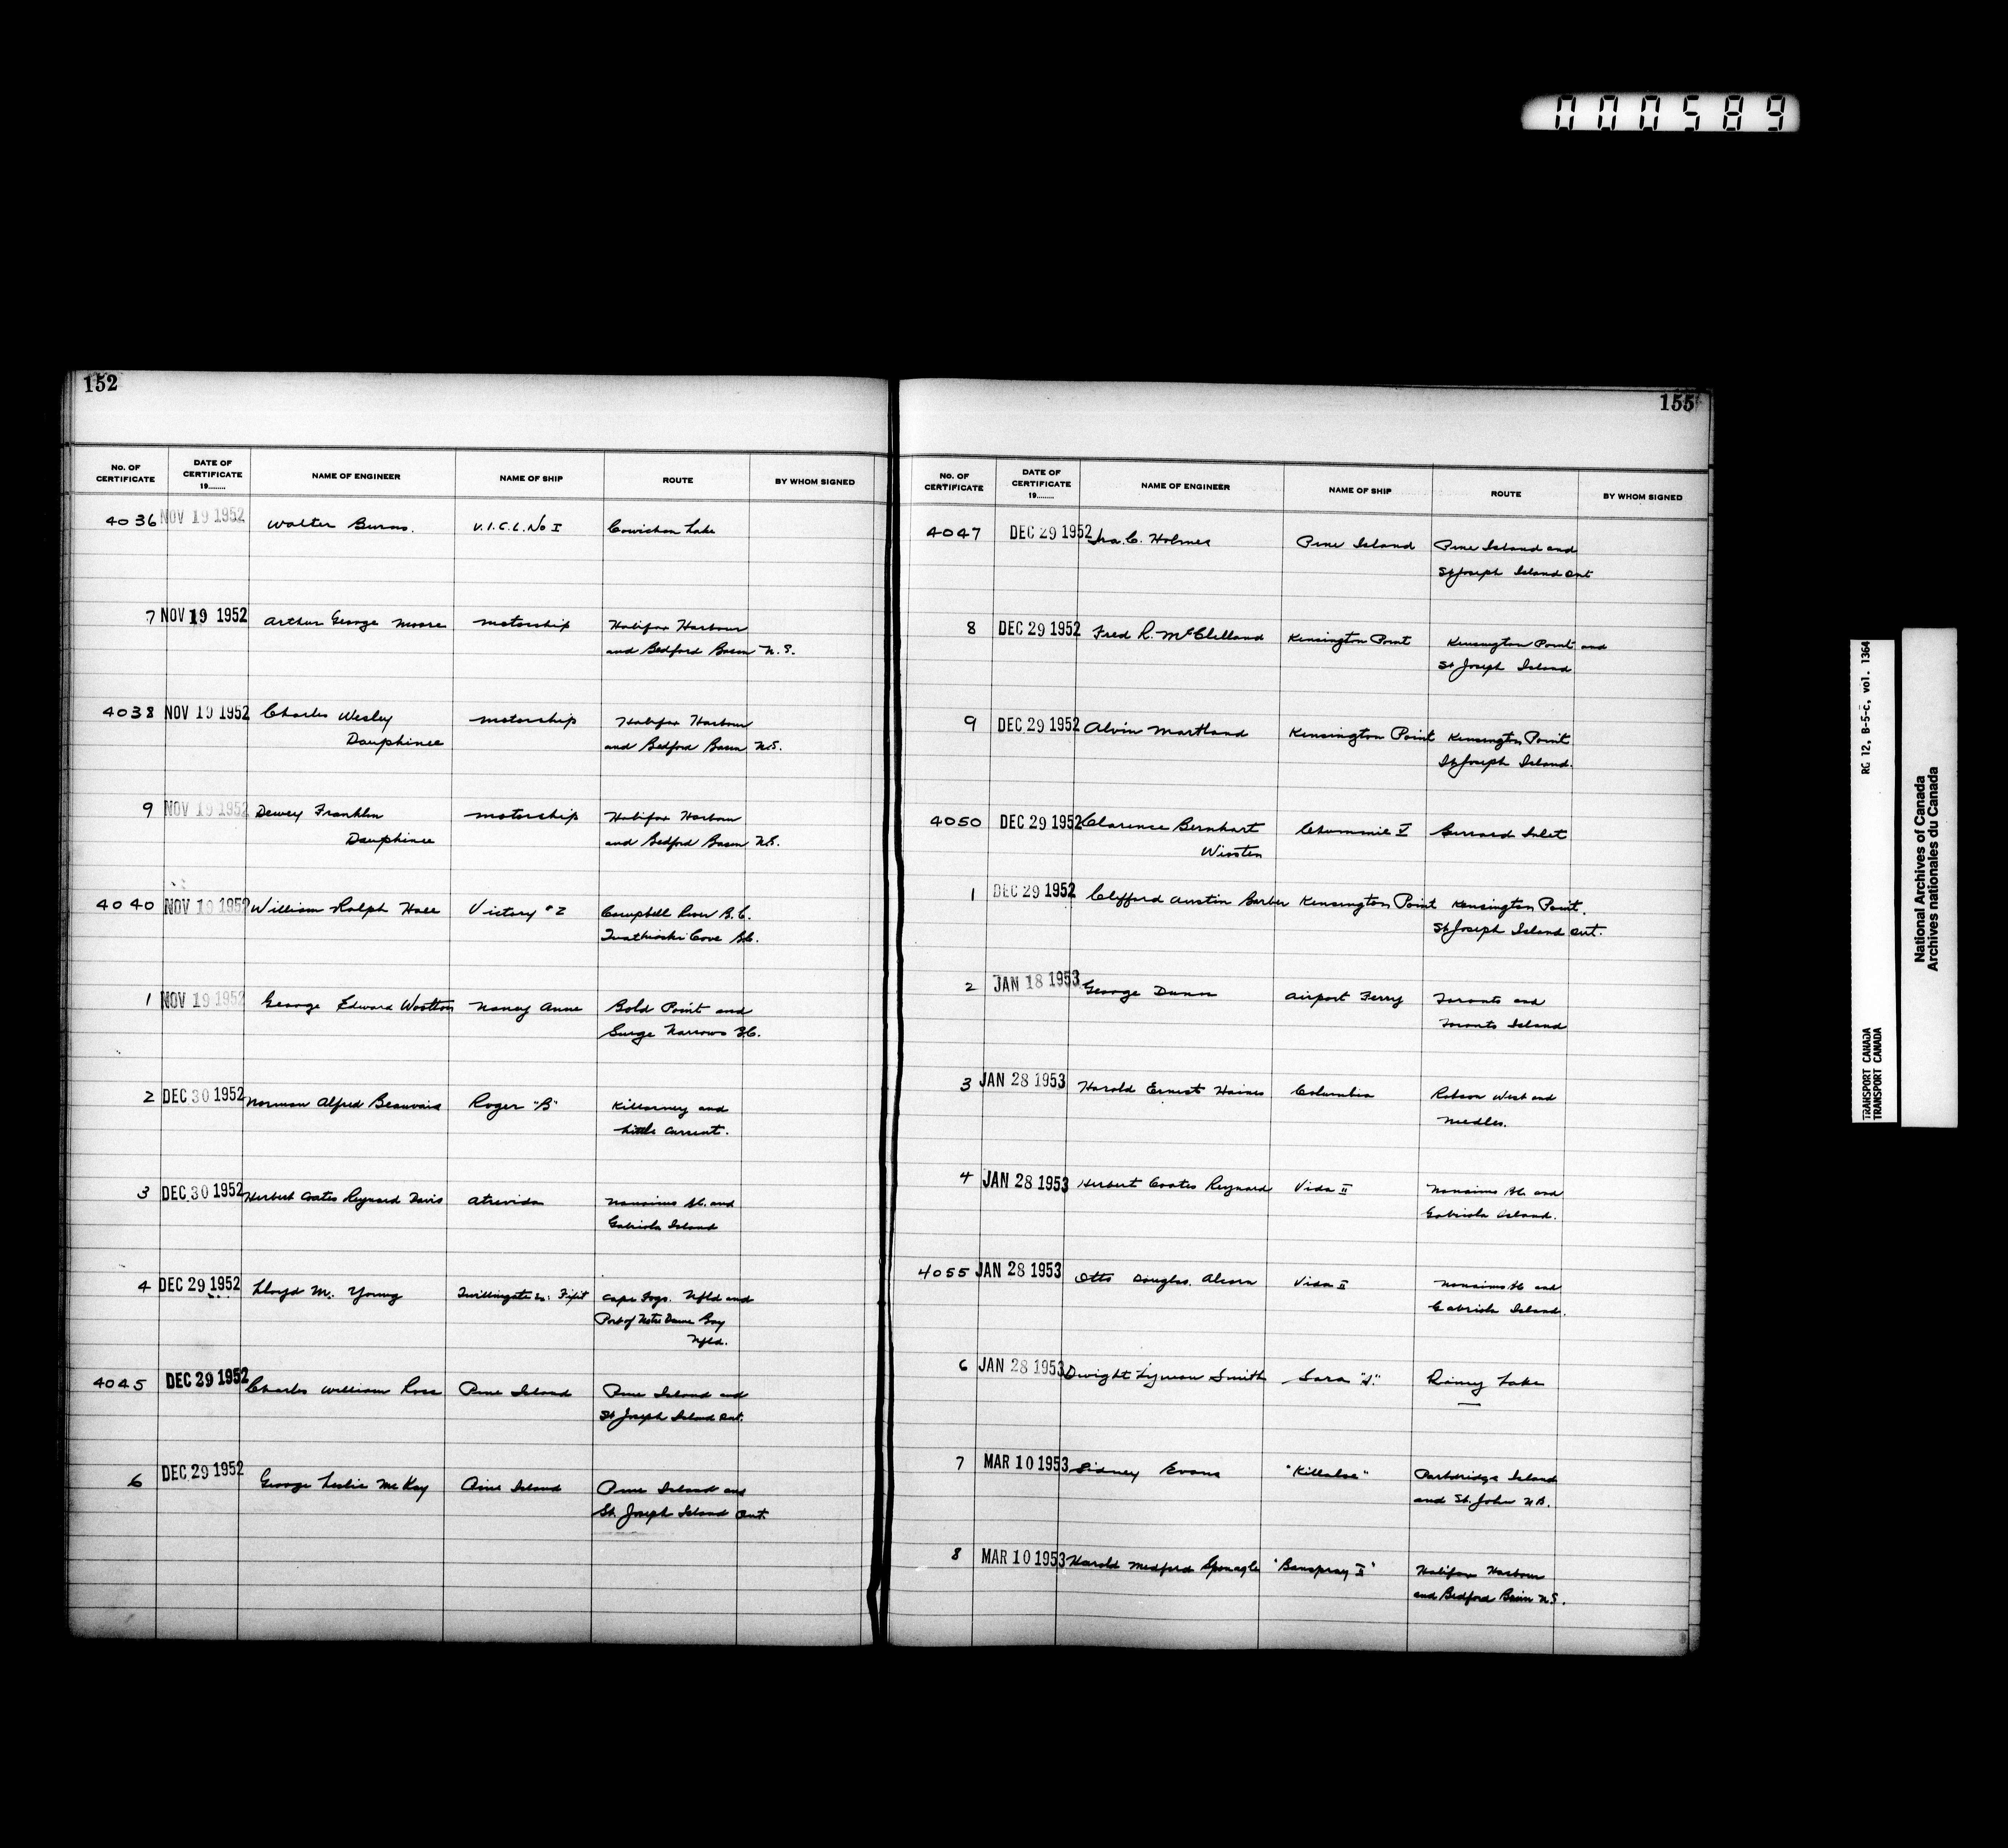 000589
152
No. OF CERTIFICATE DATE OF CERTIFICATE 19........ NAME OF ENGINEER NAME OF SHIP ROUTE BY WHOM SIGNED
4036 NOV 19 1952 Walter Burns. V.I.C.L. No I Cowichan Lake
7 NOV 19 1952 Arthur George Moore motorship Halifax Harbour
and Bedford Basin N.S.
4038 NOV 19 1952 Charles Wesley motorship Halifax Harbour
Dauphinee and Bedford Basin N.S.
9 NOV 19 1952 Dewey Franklin motorship Halifax Harbour
Dauphinee and Bedford Basin N.S.
4040 NOV 19 1952 William Ralph Hall Victory #2 Campbell River B.C.
Cove B.C.
1 NOV 19 1952 George Edward Wootton Nancy Anne Bold Point and
Surge Narrows B.C.
2 DEC 30 1952 Norman Alfred Beauvais Roger "B" Killarney and
Little Current.
3 DEC 30 1952 Herbert Coates Reynard Davis Atrevida Nanaimo B.C. and
Gabriola Island
4 DEC 29 1952 Lloyd M. Young Cape Fogo. Nfld and
Port of Notre Dame Bay
Nfld.
4045 DEC 29 1952 Charles William Ross Pine Island Pine Island and
St Joseph Island Ont.
6 DEC 29 1952 George Leslie McKay Pine Island Pine Island and
St. Joseph Island Ont.
155
No. OF CERTIFICATE DATE OF CERTIFICATE 19........ NAME OF ENGINEER NAME OF SHIP ROUTE BY WHOM SIGNED
4047 DEC 29 1952 Ira. C. Holmes Pine Island Pine Island and
St Joseph Island Ont
8 DEC 29 1952 Fred R. McClelland Kensington Point Kensington Point and
St Joseph Island
9 DEC 29 1952 Alvin Martland Kensington Point Kensington Point
St Joseph Island.
4050 DEC 29 1952 Clarence Bernhart Chummie V Burrard Inlet
Winsten
1 DEC 29 1952 Clifford Austin Barber Kensington Point Kensington Point.
St Joseph Island Ont.
2 JAN 18 1953 George Dunn Airport Ferry Toronto and
Toronto Island
3 JAN 28 1953 Harold Ernest Haines Columbia Robson West and
Needles.
4 JAN 28 1953 Herbert Coates Reynard Vida II Nanaimo B.C. and
Gabriola Island.
4055 JAN 28 1953 Otto Douglas. Alcorn Vida II Nanaimo B.C. and
Gabriola Island.
6 JAN 28 1953 Dwight Lyman Smith Sara "S." Rainy Lake
7 MAR 10 1953 Sidney Evans "Killaloe" Partridge Island
and St. John N.B.
8 MAR 10 1953 Harold Medford Sponagle "Banspray II" Halifax Harbour
and Bedford Basin N.S.
RG 12, B-5-c, vol. 1364
TRANSPORT CANADA
TRANSPORT CANADA
National Archives of Canada
Archives nationales du Canada